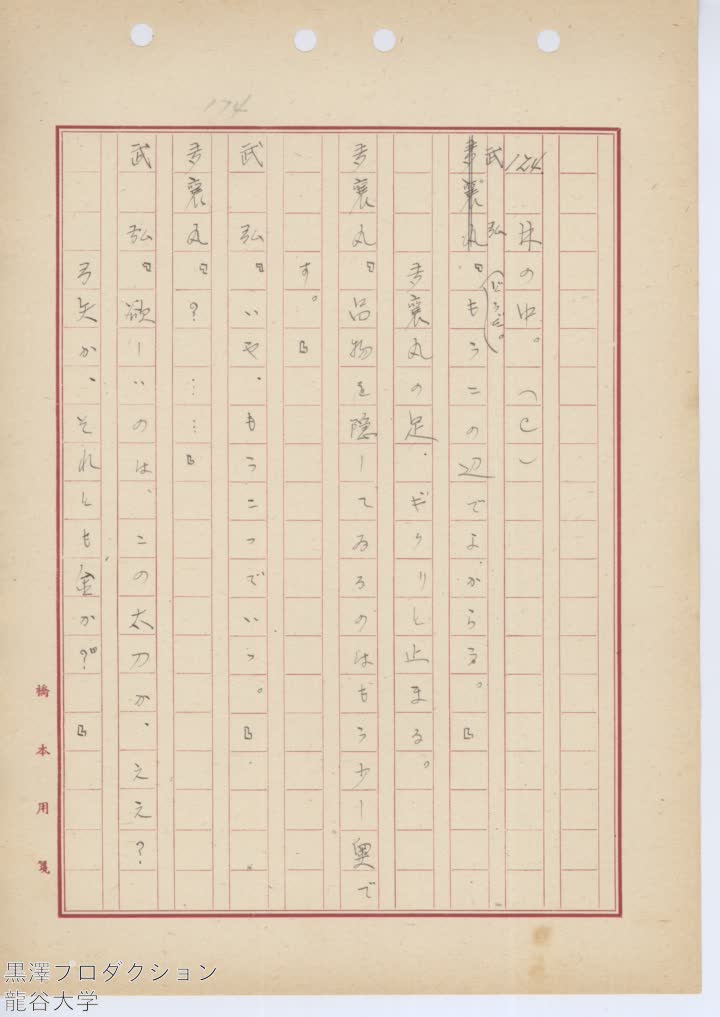 174
124　林の中。（C）
武　弘『もうこの辺でよからう。』
多襄丸の足、ギクリと止まる。
多襄丸『品物を隠してゐるのはもう少し奥で
す。』
武　弘『いや、もうこゝでいゝ。』
多襄丸『？……』
武　弘『欲しいのは、この太刀か、ええ？
弓矢か、それとも金か？』
橋本用箋
黒澤プロダクション
龍谷大学